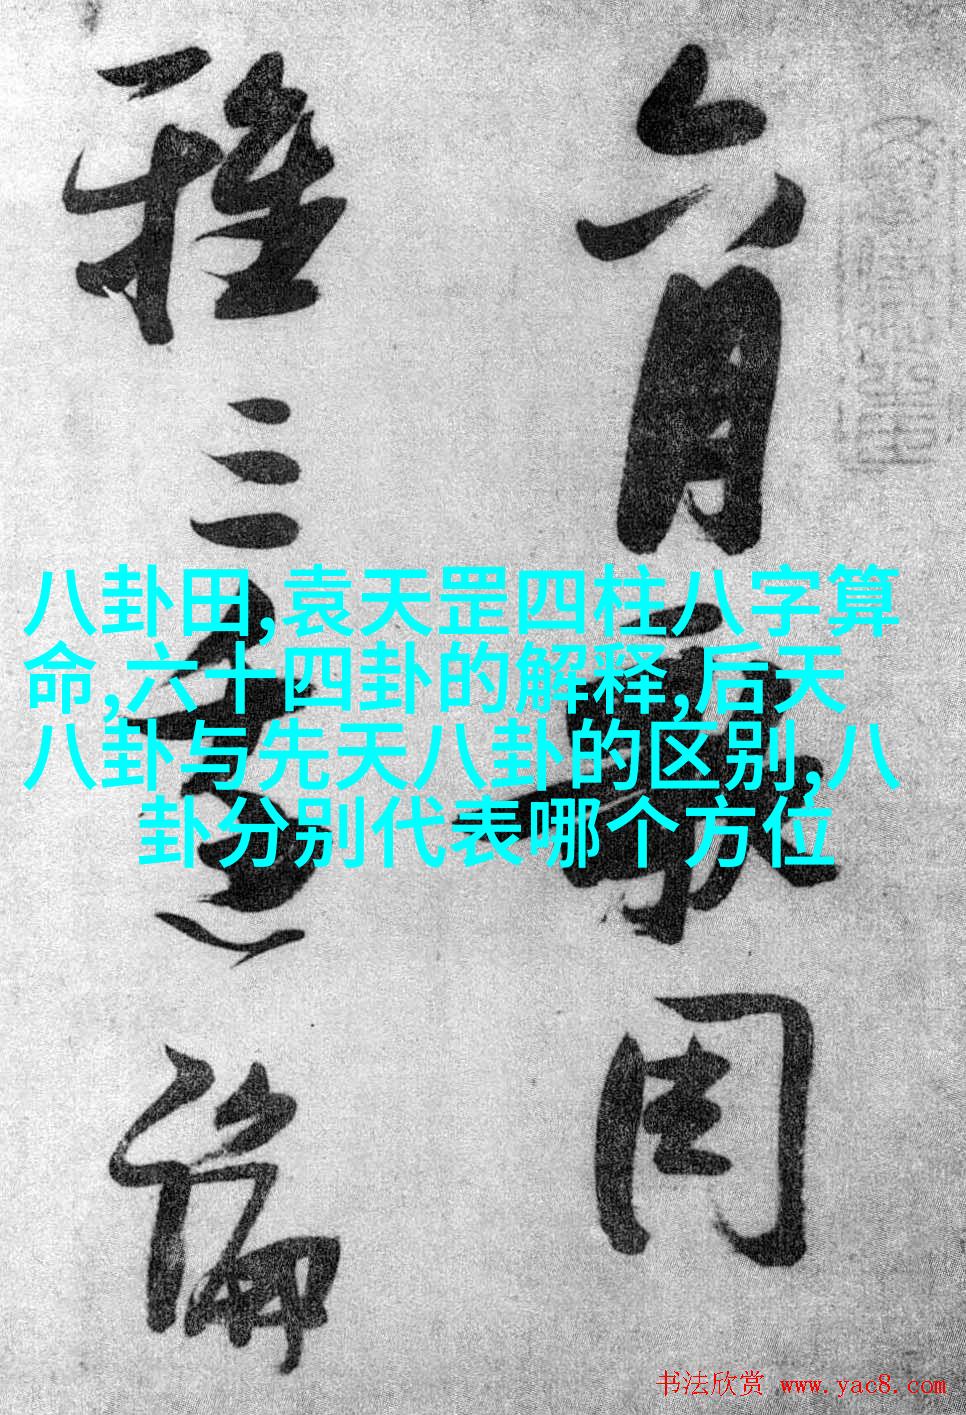 六月周
雅三論
八卦田,袁天罡四柱八字算
命,六十四卦的解释,后天
八卦与先天八卦的区别,八
卦分别代表哪个方位
书法欣赏 www.yac8.com